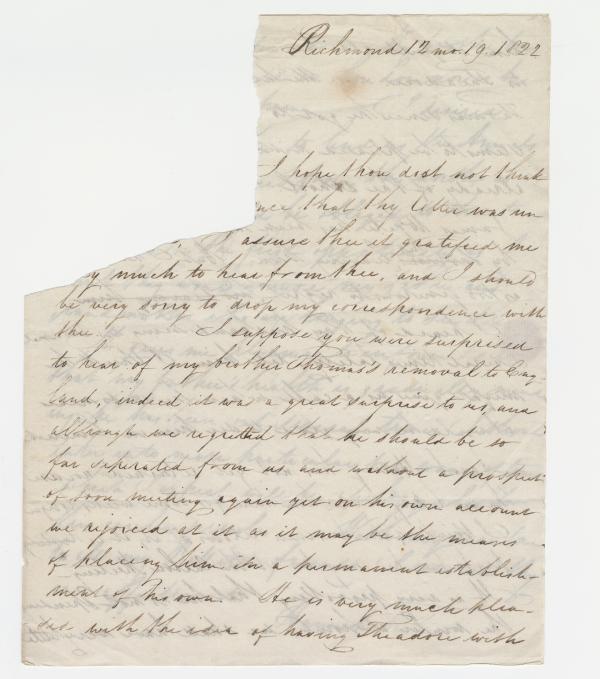 Richmond 12 mo. 19. 1822
I hope thou dost not think
that thy letter was un
I assure thee it gratified me
much to hear from thee, and I should
be very sorry to drop my correspondence with
thee. I suppose you were surprised
to hear of my brother Thomas's removal to Eng
land, indeed it was a great surprise to us, and
although we regretted that he should be so
far seperated from us and without a prospect
of soon meeting again yet on his own account
we rejoiced at it as it may be the means
of placing him in a permanent establish-
ment of his own. He is very much plea-
sed with the idea of having Theadore with